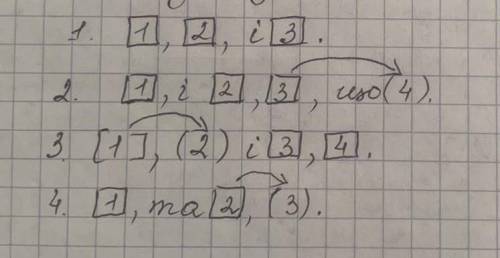 1. [1], [2], і [3].
2. [1], і [2], [3], що (4).
3. [1], (2) і [3], [4].
4. [1], та [2], (3).